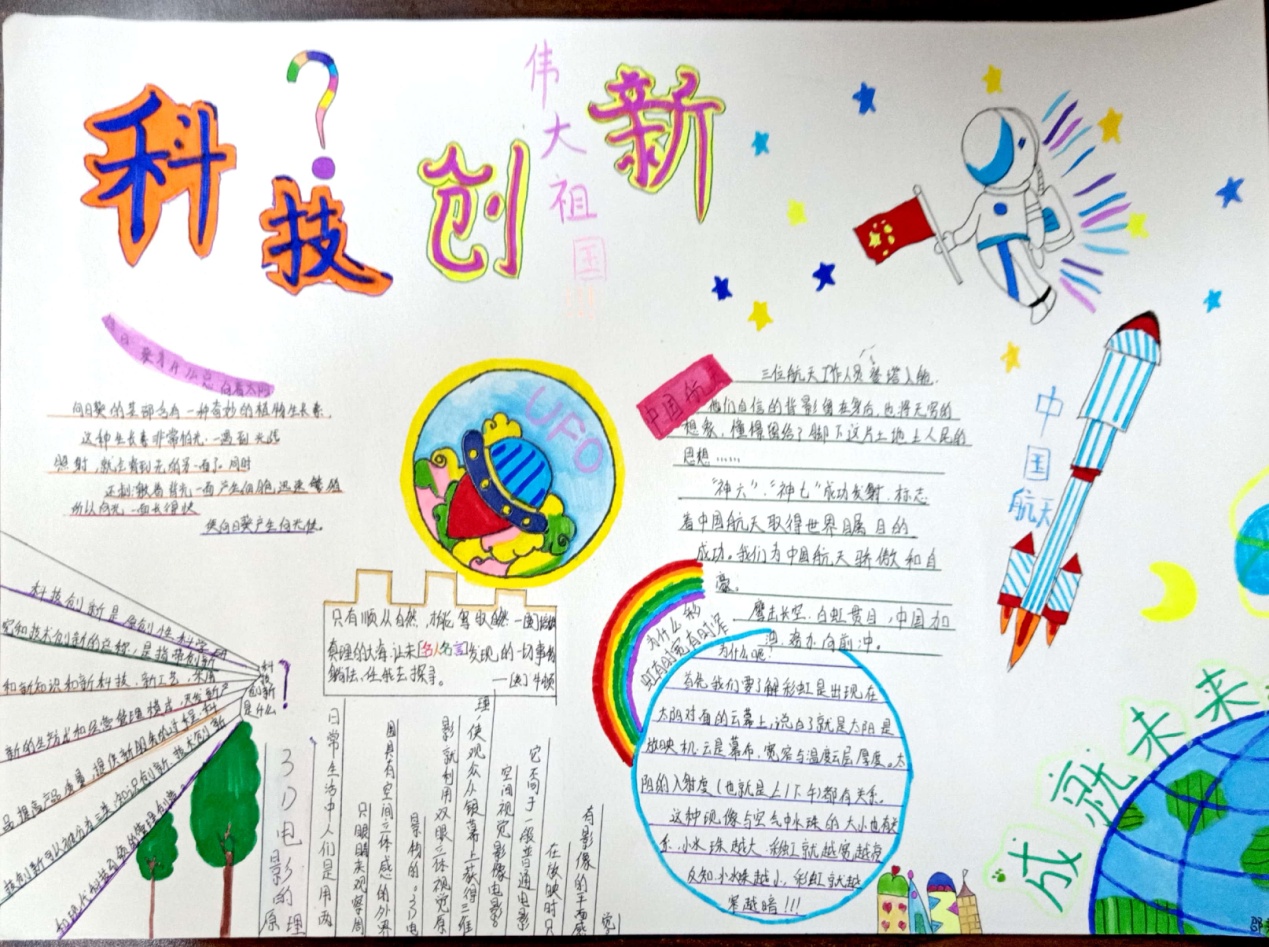 科技创新
?
伟大祖国
向日葵为什么总向着太阳
向日葵的茎部含有一种奇妙的植物生长素,
这种生长素非常怕光。一遇到光线
照射,就会背到光的另一面了。同时
所以向光一面长得快
使向日葵产生向光性。
UFO
中国航天
三位航天工作人员登塔入舱.
他们自信的背影留在身后,也将无穷的
想象,憧憬留给了脚下这片土地上人民的
思想……
“神六”、“神七”成功发射.标志
着中国航天取得世界瞩目的
成功。我们为中国航天骄傲和自
豪。
鹰击长空.白虹贯日,中国加
油.努力向前冲。
中国航天
只有顺从自然,才能驾驭自然
真理的大海,让未发现的一切事物
躺法,任我去探寻。
名人名言
—[英]牛顿
为什么彩
虹有时宽有时窄
为什么呢?
首先我们要了解彩虹是出现在
太阳对面的云幕上,说白了就是太阳是
放映机.云是幕布.宽窄与温度云层厚度。太
阳的入射度(也就是上/下午)都有关系.
这种现像与空气中水珠的大小也有关
系.小水珠越大.彩虹就越宽越亮
反知.小水珠越小,彩虹就越
窄越暗!!!
科技创新是什么
!
科技创新是原创性科学研
究和技术创新的总称,是指创造
和新知识和新科技、新工艺,采用
新的生产方式和经营管理模式,开发新产
品,提高产品质量,提供新服务的过程.科
技创新可以被分为三类:知识创新.技术创新
和现代科技引领的管理创新。
3D电影的原理
日常生活中人们是用两
只眼睛来观察周
围具有空间立体感的外界
景物的。3D电
影就利用双眼立体视觉原
理,使观众从银幕上获得三维
空间视觉影像电影
它不同于一般普通电影
在放映时只
有影像的平面感
觉
成就未来